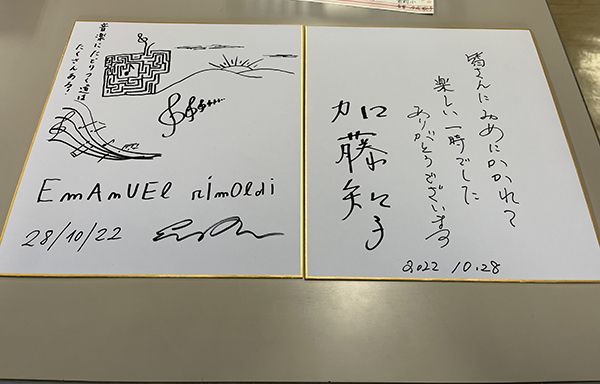 音楽にたどりつく道は
たくさんある!
EmAnUEl rimOldi
28/10/22
皆さんにおめにかかれて
楽しい一時でした
ありがとうございます
加藤知子
2022 10.28